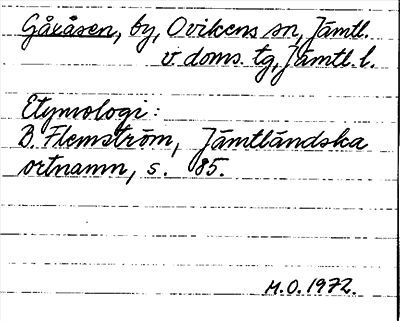 Gåxåsen, by, Ovikens sn, Jämtl.
v. doms. tg, Jämtl. l.
Etymologi:
B. Flemström, Jämtländska
ortnamn, s. 85.
M.O. 1972.